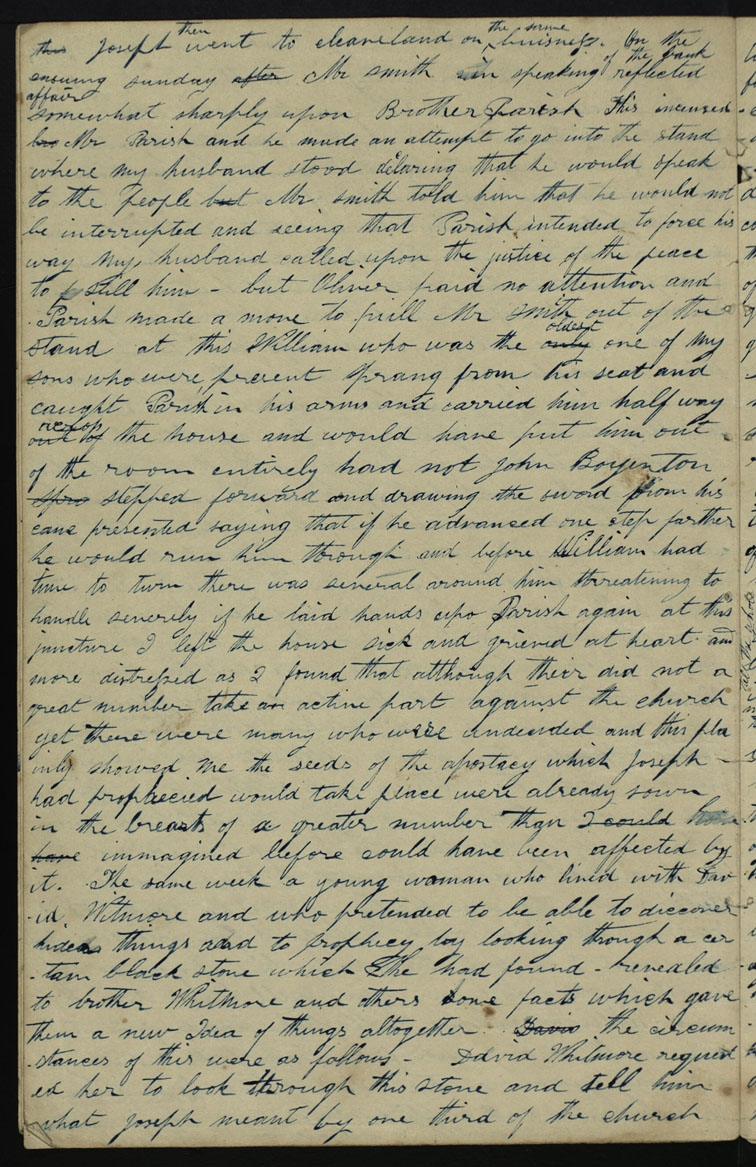 this Joseph then went to cleaveland on the same buisness. On the
ensuing sunday after Mr smith in speaking of the bank reflected
affair
somewhat sharply upon Brother Parish This incensed
Mr Parish and he made an attempt to go into the stand
where my husband stood declaring that he would speak
to the people but Mr smith told him that he would not
be interrupted and seeing that Parish intended to force his
way My husband called upon the justice of the peace
to still him - but Oliver paid no attention and
Parish made a move to pull Mr smith out of the
stand at this William who was the only oldest one of my
sons who were present sprang from his seat and
caught Parish in his arms and carried him half way
out of across the house and would have put him out
of the room entirely had not John Boyenton
stepped forward and drawing the sword from his
cane presented saying that if he advanced one step farther
he would run him through and before William had
time to turn there was several around him threatening to
handle severely if he laid hands upo Parish again at this
juncture I left the house sick and grieved at heart and
more distressed as I found that although their did not a
great number take an active part against the church
yet there were many who were undecided and this pla
inly showed me the seeds of the apostacy which Joseph -
had prophecied would take place were already sown
in the breasts of a greater number than I could
have immagined before could have been affected by
it. The same week a young woman who lived with Dav
-id Witmore and who pretended to be able to discover
hiden things and to prophecy by looking through a cer
-tain black stone which She had found - revealed
to brother Whitmore and others some facts which gave
them a new Idea of things altogether. David the circum
-stances of this were as follows - David Whitmore request
ed her to look through this stone and tell him
what joseph meant by one third of the church